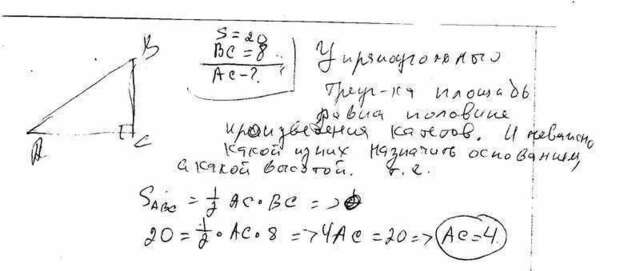 B
A
C
S = 20
BC = 8
AC - ?
У прямоугольного
треуг-ка площадь
равна половине
произведения катетов. И неважно
какой из них назначить основанием,
а какой высотой. т.е.
S ABC = 1/2 AC · BC =>
20 = 1/2 · AC · 8 => 4AC = 20 => AC = 4.